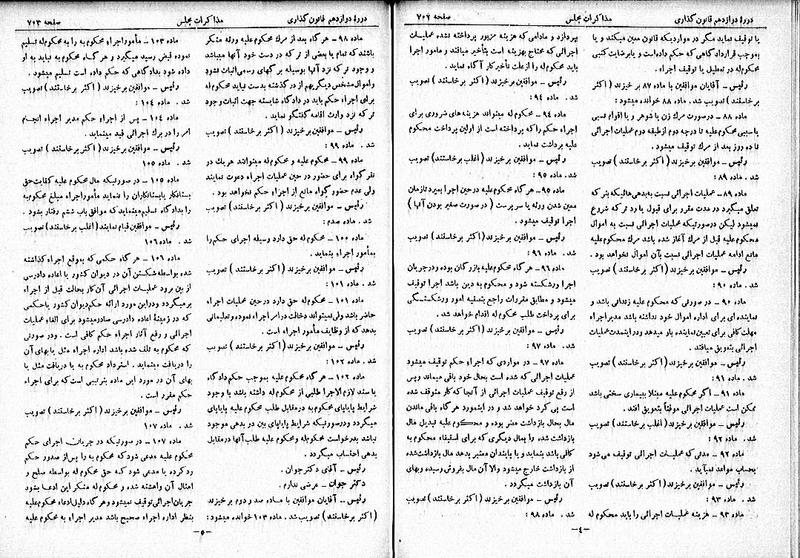 دورهٔ دوازدهم قانون گذاری
مذاکرات مجلس
صفحه ۷۰۲
یا توقیف نماید مگر در مواردیکه قانون معین میکند و یا
بموجب قرار دادگاهی که حکم داده است و یا برضایت کتبی
محکوم‌له در تعطیل یا توقیف اجراء.
رئیس - آقایان موافقین با ماده ۸۷ برخیزند (اکثر
برخاستند) تصویب شد. ماده ۸۸ خوانده میشود:
ماده ۸۸ - درصورت مرك زن یا شوهر و یا اقوام نسبی
یا سببی محکوم‌علیه تا درجه دوم از طبقه دوم عملیات اجرائی
تا ده روز بعد از مرك توقیف میشود.
رئیس - موافقین برخیزند (اکثر برخاستند) تصویب
شد. ماده ۸۹:
ماده ۸۹ - عملیات اجرائی نسبت ببدهی‌هائیکه بتر که
تعلق میگیرد در مدت مقرر برای قبول یا رد تر که شروع
نمیشود لیکن درصورتیکه عملیات اجرائی نسبت به اموال
محکوم‌علیه قبل از مرك آغاز شده باشد مرك محکوم‌علیه
مانع ادامه عملیات اجرائی نسبت بآن اموال نخواهد بود.
رئیس - موافقین برخیزند (اکثر برخاستند) تصویب
شد. ماده ۹۰:
ماده ۹۰ - در صورتی که محکوم علیه زندانی باشد و
نماینده ای برای اداره اموال خود نداشته باشد مدیر اجراء
مهلت کافی برای تعیین نماینده باو میدهد و در اینمدت عملیات
اجرائی بتعویق میافتد.
رئیس - موافقین برخیزند (اکثر برخاستند) تصویب
شد. ماده ۹۱:
ماده ۹۱ - اگر محکوم علیه مبتلا ببیماری سختی باشد
ممکن است عملیات اجرائی موقتاً بتعویق افتد.
رئیس - موافقین برخیزند (اغلب برخاستند) تصویب
شد. ماده ۹۲:
ماده ۹۲ - مدتی که عملیات اجرائی توقیف می‌شود
بحساب مواعد نمیآید.
رئیس - موافقین برخیزند (اکثر برخاستند) تصویب
شد. ماده ۹۳:
ماده ۹۳ - هزینه عملیات اجرائی را باید محکوم له
بپردازد و مادامی که هزینه مزبور پرداخته نشده عملیات
اجرائی که محتاج بهزینه است بتأخیر میافتد و مامور اجرا
باید محکوم‌له را از علت تأخیر کار آگاه نماید.
رئیس - موافقین برخیزند (اکثر برخاستند) تصویب
شد. ماده ۹۴:
ماده ۹۴ - محکوم له میتواند هزینه‌های ضروری برای
اجراء حکم را که پرداخته است از اولین پرداخت محکوم
علیه برداشت نماید.
رئیس - موافقین برخیزند (اغلب برخاستند) تصویب
شد. ماده ۹۵:
ماده ۹۵ - هر گاه محکوم علیه در حین اجرا بمیرد تا زمان
معین شدن ورثه یا سرپرست (در صورت صغیر بودن آنها)
اجرا توقیف میشود.
رئیس - موافقین برخیزند (اکثر برخاستند) تصویب
شد. ماده ۹۶:
ماده ۹۶ - هر گاه محکوم علیه بازرگان بوده و در جریان
اجرا ورشکسته شود و محکوم به دین باشد اجرا توقیف
میشود و مطابق مقررات راجع بتصفیه امور ورشکستگی
برای پرداخت طلب محکوم له اقدام خواهد شد.
رئیس - موافقین برخیزند (اکثر برخاستند) تصویب
شد. ماده ۹۷:
ماده ۹۷ - در مواردی که اجراء حکم توقیف میشود
عملیات اجرائی که شده است بحال خود باقی میماند و پس
از رفع توقیف عملیات اجرائی از آنجا که کار متوقف شده
است پی کرد خواهد شد و در اینمورد هر گاه باقی ماندن
مال بحال بازداشت مضر بوده و محکوم علیه تبدیل مال
بازداشت شده را بمال دیگری که برای استیفاء محکوم به
کافی باشد بنماید و یا پابندان معتبر بدهد مال بازداشت‌شده
از بازداشت خارج میشود والا آن مال بفروش رسیده و بهای
آن بازداشت میگردد.
رئیس - موافقین برخیزند (اکثر برخاستند) تصویب
شد. ماده ۹۸:
- ٤ -
دورهٔ دوازدهم قانون گذاری
مذاکرات مجلس
صفحه ۷۰۳
ماده ۹۸ - هر گاه بعد از مرك محکوم علیه ورثه منکر
باشند که تمام یا بعضی از تر که در دست خود آنها میباشد
و وجود تر که نزد آنها بوسیله برگهای رسمی اثبات نشود
و اموال مشخص دیگر بهم از درگذشته بدست نیاید محکوم له
برای اجراء حکم باید در دادگاه شایسته جهت اثبات وجود
تر که نزد وارث اقامه گفتگو نماید.
رئیس - موافقین برخیزند (اکثر برخاستند) تصویب
شد. ماده ۹۹:
ماده ۹۹ - محکوم علیه و محکوم له میتوانند هریك در
نفر گواه برای حضور در حین عملیات اجراء دعوت نمایند
ولی عدم حضور گواه مانع از اجراء حکم نخواهد بود.
رئیس - موافقین برخیزند (اکثر برخاستند) تصویب
شد. ماده صدم:
ماده ۱۰۰ - محکوم له حق دارد وسیله اجرای حکم را
بمأمور اجراء بنماید.
رئیس - موافقین برخیزند (اکثر برخاستند) تصویب
شد. ماده ۱۰۱:
ماده ۱۰۱ - محکوم له حق دارد در حین عملیات اجراء
حاضر باشد ولی نمیتواند دخالت در امر اجراء نموده و تعلیماتی
بدهد که از وظایف مأمور اجراء است.
رئیس - موافقین برخیزند (اکثر برخاستند) تصویب
شد. ماده ۱۰۲:
ماده ۱۰۲ - هر گاه محکوم علیه بموجب حکم دادگاه
یا سند لازم الاجرا طلبی از محکوم له داشته باشد با وجود
شرایط پایاپای محکوم به در مقابل طلب محکوم علیه پایاپای
میگردد و درصورتیکه شرایط پایاپای بین دو بدهی موجود
نباشد بدرخواست محکوم‌له و محکوم علیه طلب آنها در مقابل
بدهی احتساب میگردد.
رئیس - آقای دکتر جوان.
دکتر جوان - عرضی ندارم.
رئیس - آقایان موافقین با ماده صد و دوم برخیزند
(اکثر برخاستند) تصویب شد. ماده ۱۰۳ خوانده میشود:
ماده ۱۰۳ - مأمور اجراء محکوم به را به محکوم له تسلیم
نموده قبض رسید میگیرد و هر گاه محکوم به نباید به او
داده شود بدادگاهی که حکم داده است تسلیم میشود.
رئیس - موافقین برخیزند (اکثر برخاستند) تصویب
شد. ماده ۱۰۴:
ماده ۱۰۴ - پس از اجراء حکم مدیر اجراء انجام
امر را در برك اجرائی قید مینماید.
رئیس - موافقین برخیزند (اکثر برخاستند) تصویب
شد. ماده ۱۰۵
ماده ۱۰۵ - در صورتیکه مال محکوم علیه کفایت حق
بستانکار یا بستانکاران را ننماید مأمور اجراء مبلغ محکوم به
را بدادگاه تسلیم مینماید که موافق باب ششم رفتار بشود.
رئیس - موافقین قیام نمایند (اغلب برخاستند) تصویب
شد. ماده ۱۰۶
ماده ۱۰۶ - هر گاه حکمی که بموقع اجراء گذاشته
شده بواسطه شکستن آن در دیوان کشور یا اعاده دادرسی
از بین برود عملیات اجرائی آن کار بحالت قبل از اجراء
برمیگردد و در این مورد ارائه حکم دیوان کشور یا حکمی
که در زمینهٔ اعاده دادرسی صادر میشود برای الغاء عملیات
اجرائی و رفع آثار اجراء حکم کافی است. و در صورتی
که محکوم به تلف شده باشد اداره اجراء مثل یا بهای آن
را دریافت مینماید. استرداد محکوم به یا دریافت مثل یا
بهای آن در مورد این ماده بترتیبی است که برای اجراء
حکم مقرر است.
رئیس - موافقین برخیزند (اکثر برخاستند) تصویب
شد. ماده ۱۰۷
ماده ۱۰۷ - در صورتیکه در جریان اجرای حکم
محکوم علیه مدعی شود که محکوم به را پس از صدور حکم
رد کرده یا مدعی شود که حق محکوم له بواسطه صلح و
امثال آن واهشته شده و محکوم له منکر این ادعا بشود
جریان اجرائی توقیف نمیشود و هر گاه دلیل ادعاء محکوم علیه
بنظر اداره اجراء صحیح باشد مدیر اجراء به محکوم علیه
- ٥ -